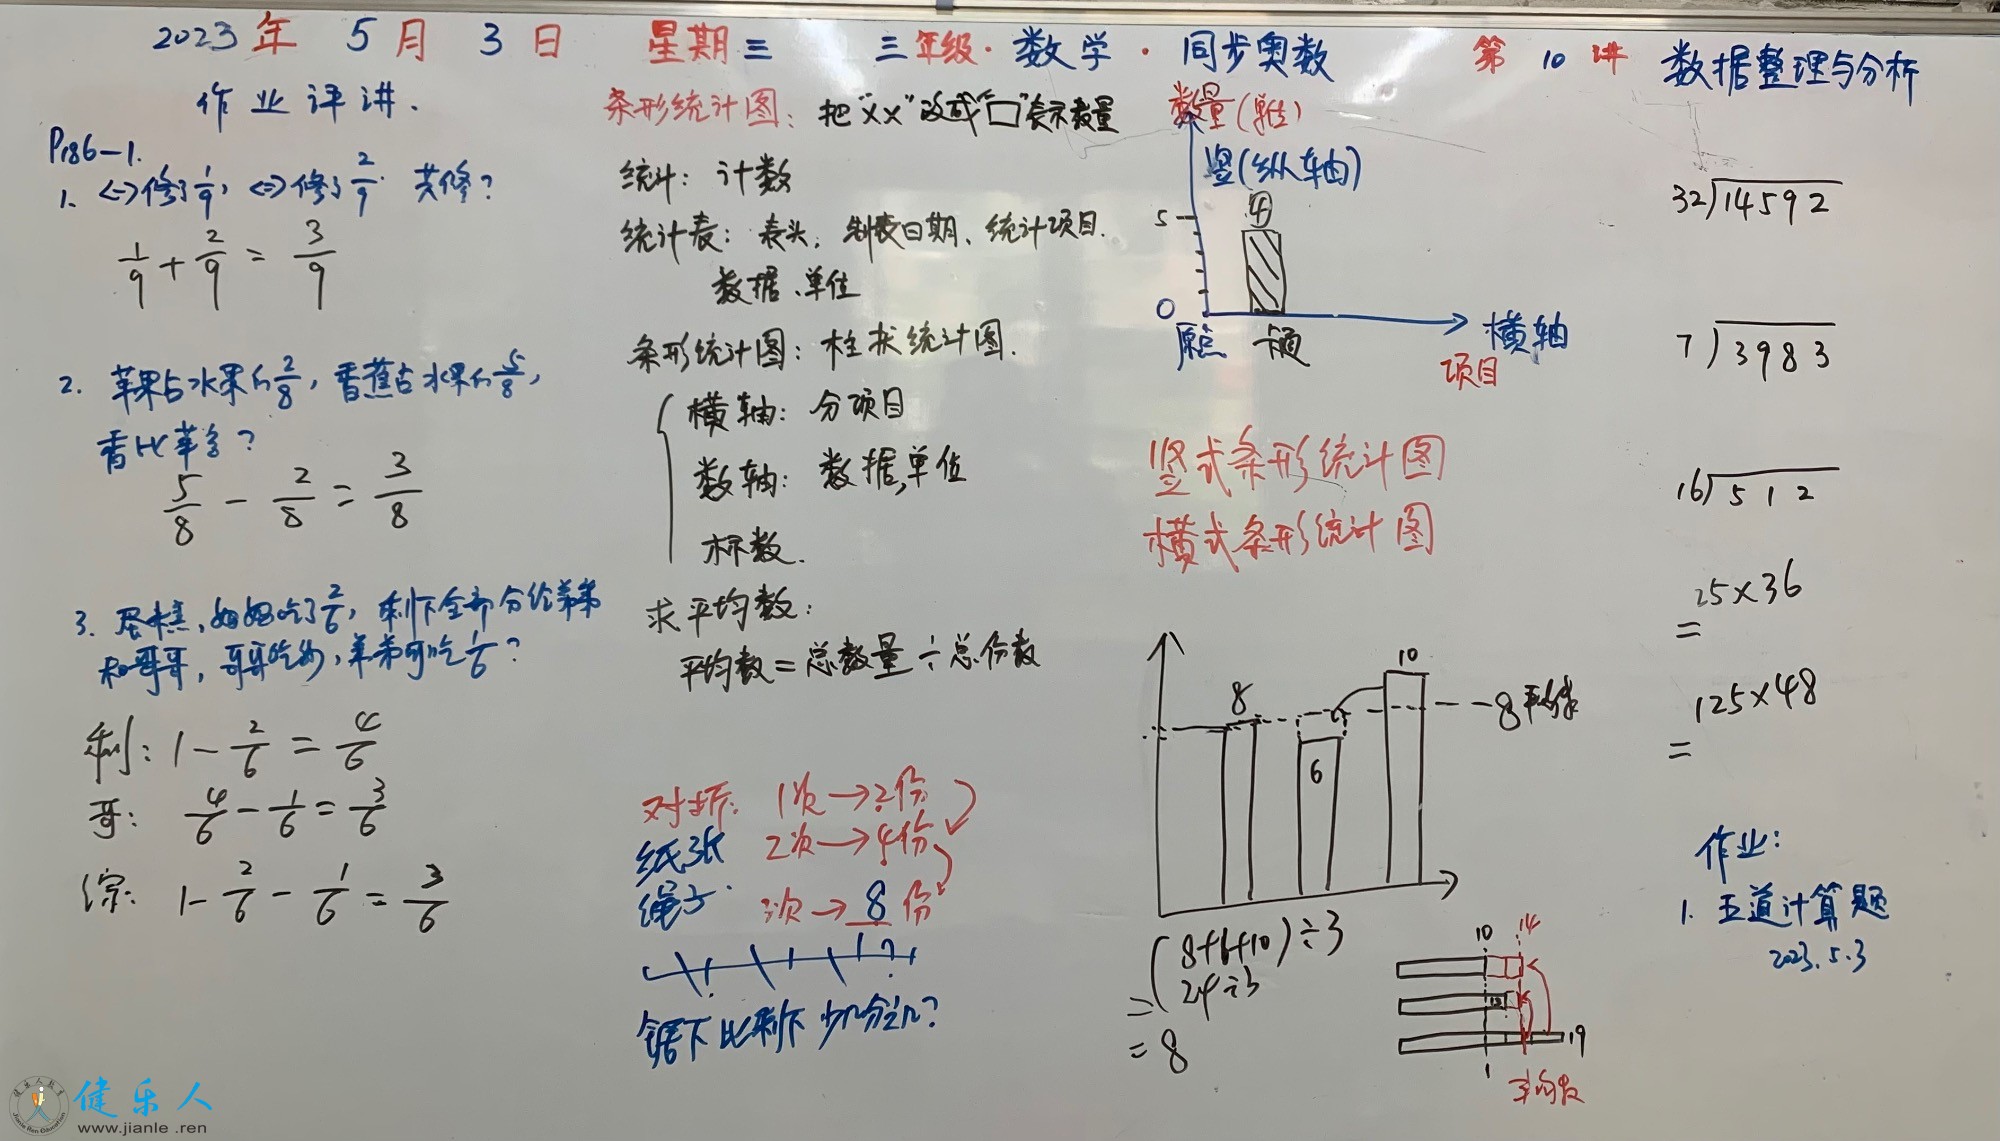 2023年 5月 3日 星期三 三年级·数学·同步奥数 第10讲 数据整理与分析
作业评讲.
P186-1.
1. <->修了1/9, <=>修了2/9. 共修?
1/9 + 2/9 = 3/9
2. 苹果占水果的2/8, 香蕉占水果的5/8,
香比苹多?
5/8 - 2/8 = 3/8
3. 蛋糕, 妈妈吃了2/6, 剩下全部分给弟弟
和哥哥, 哥哥吃的, 弟弟可吃1/6?
剩: 1 - 2/6 = 4/6
哥: 4/6 - 1/6 = 3/6
综: 1 - 2/6 - 1/6 = 3/6
条形统计图: 把"××"改成"□"表示数量
统计: 计数
统计表: 表头, 制表日期、统计项目.
数据、单位
条形统计图: 柱状统计图.
横轴: 分项目
数轴: 数据,单位
标数.
求平均数:
平均数=总数量÷总份数
对折: 1次→2份
纸张 2次→4份
绳子 3次→8份
?
锯下比剩下少几分之几?
数量(单位)
竖(纵轴)
④
5
0
原点
横轴
项目
竖式条形统计图
横式条形统计图
10
8
6
8平均数
(8+6+10)÷3
= 24÷3
= 8
10 14
19
1
平均数
32)14592
7)3983
16)512
25×36
=
125×48
=
作业:
1. 五道计算题
2023.5.3
健乐人
www.jianle .ren